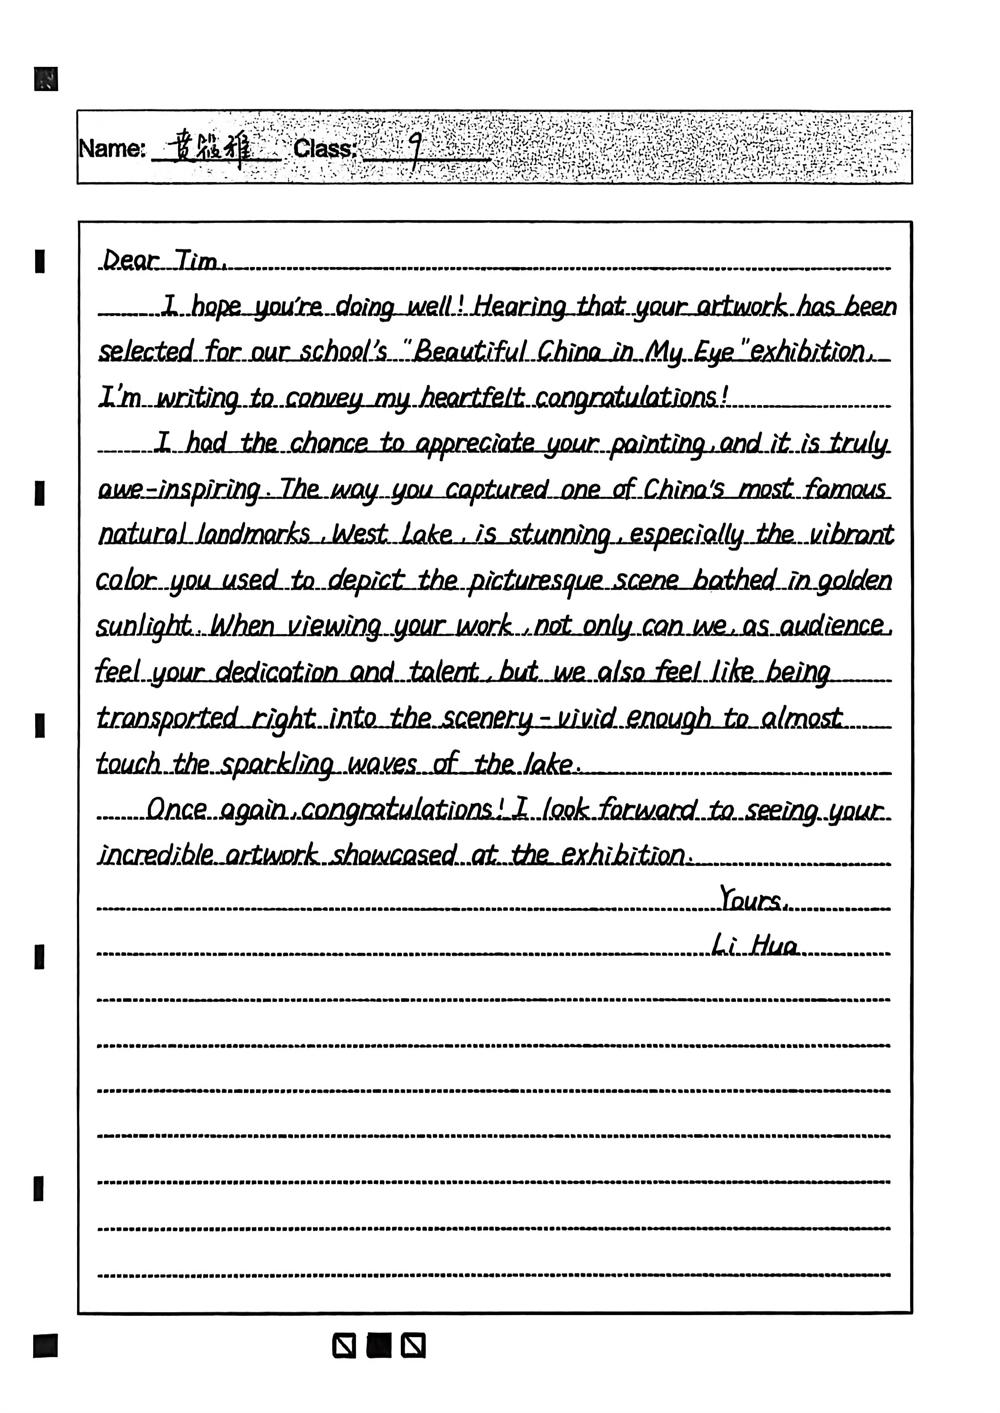 Name: 黄筱雅 Class: 9
Dear Tim,
I hope you're doing well! Hearing that your artwork has been
selected for our school's "Beautiful China in My Eye" exhibition,
I'm writing to convey my heartfelt congratulations!
I had the chance to appreciate your painting, and it is truly
awe-inspiring. The way you captured one of China's most famous
natural landmarks, West Lake, is stunning, especially the vibrant
color you used to depict the picturesque scene bathed in golden
sunlight. When viewing your work, not only can we, as audience,
feel your dedication and talent, but we also feel like being
transported right into the scenery - vivid enough to almost
touch the sparkling waves of the lake.
Once again, congratulations! I look forward to seeing your
incredible artwork showcased at the exhibition.
Yours,
Li Hua